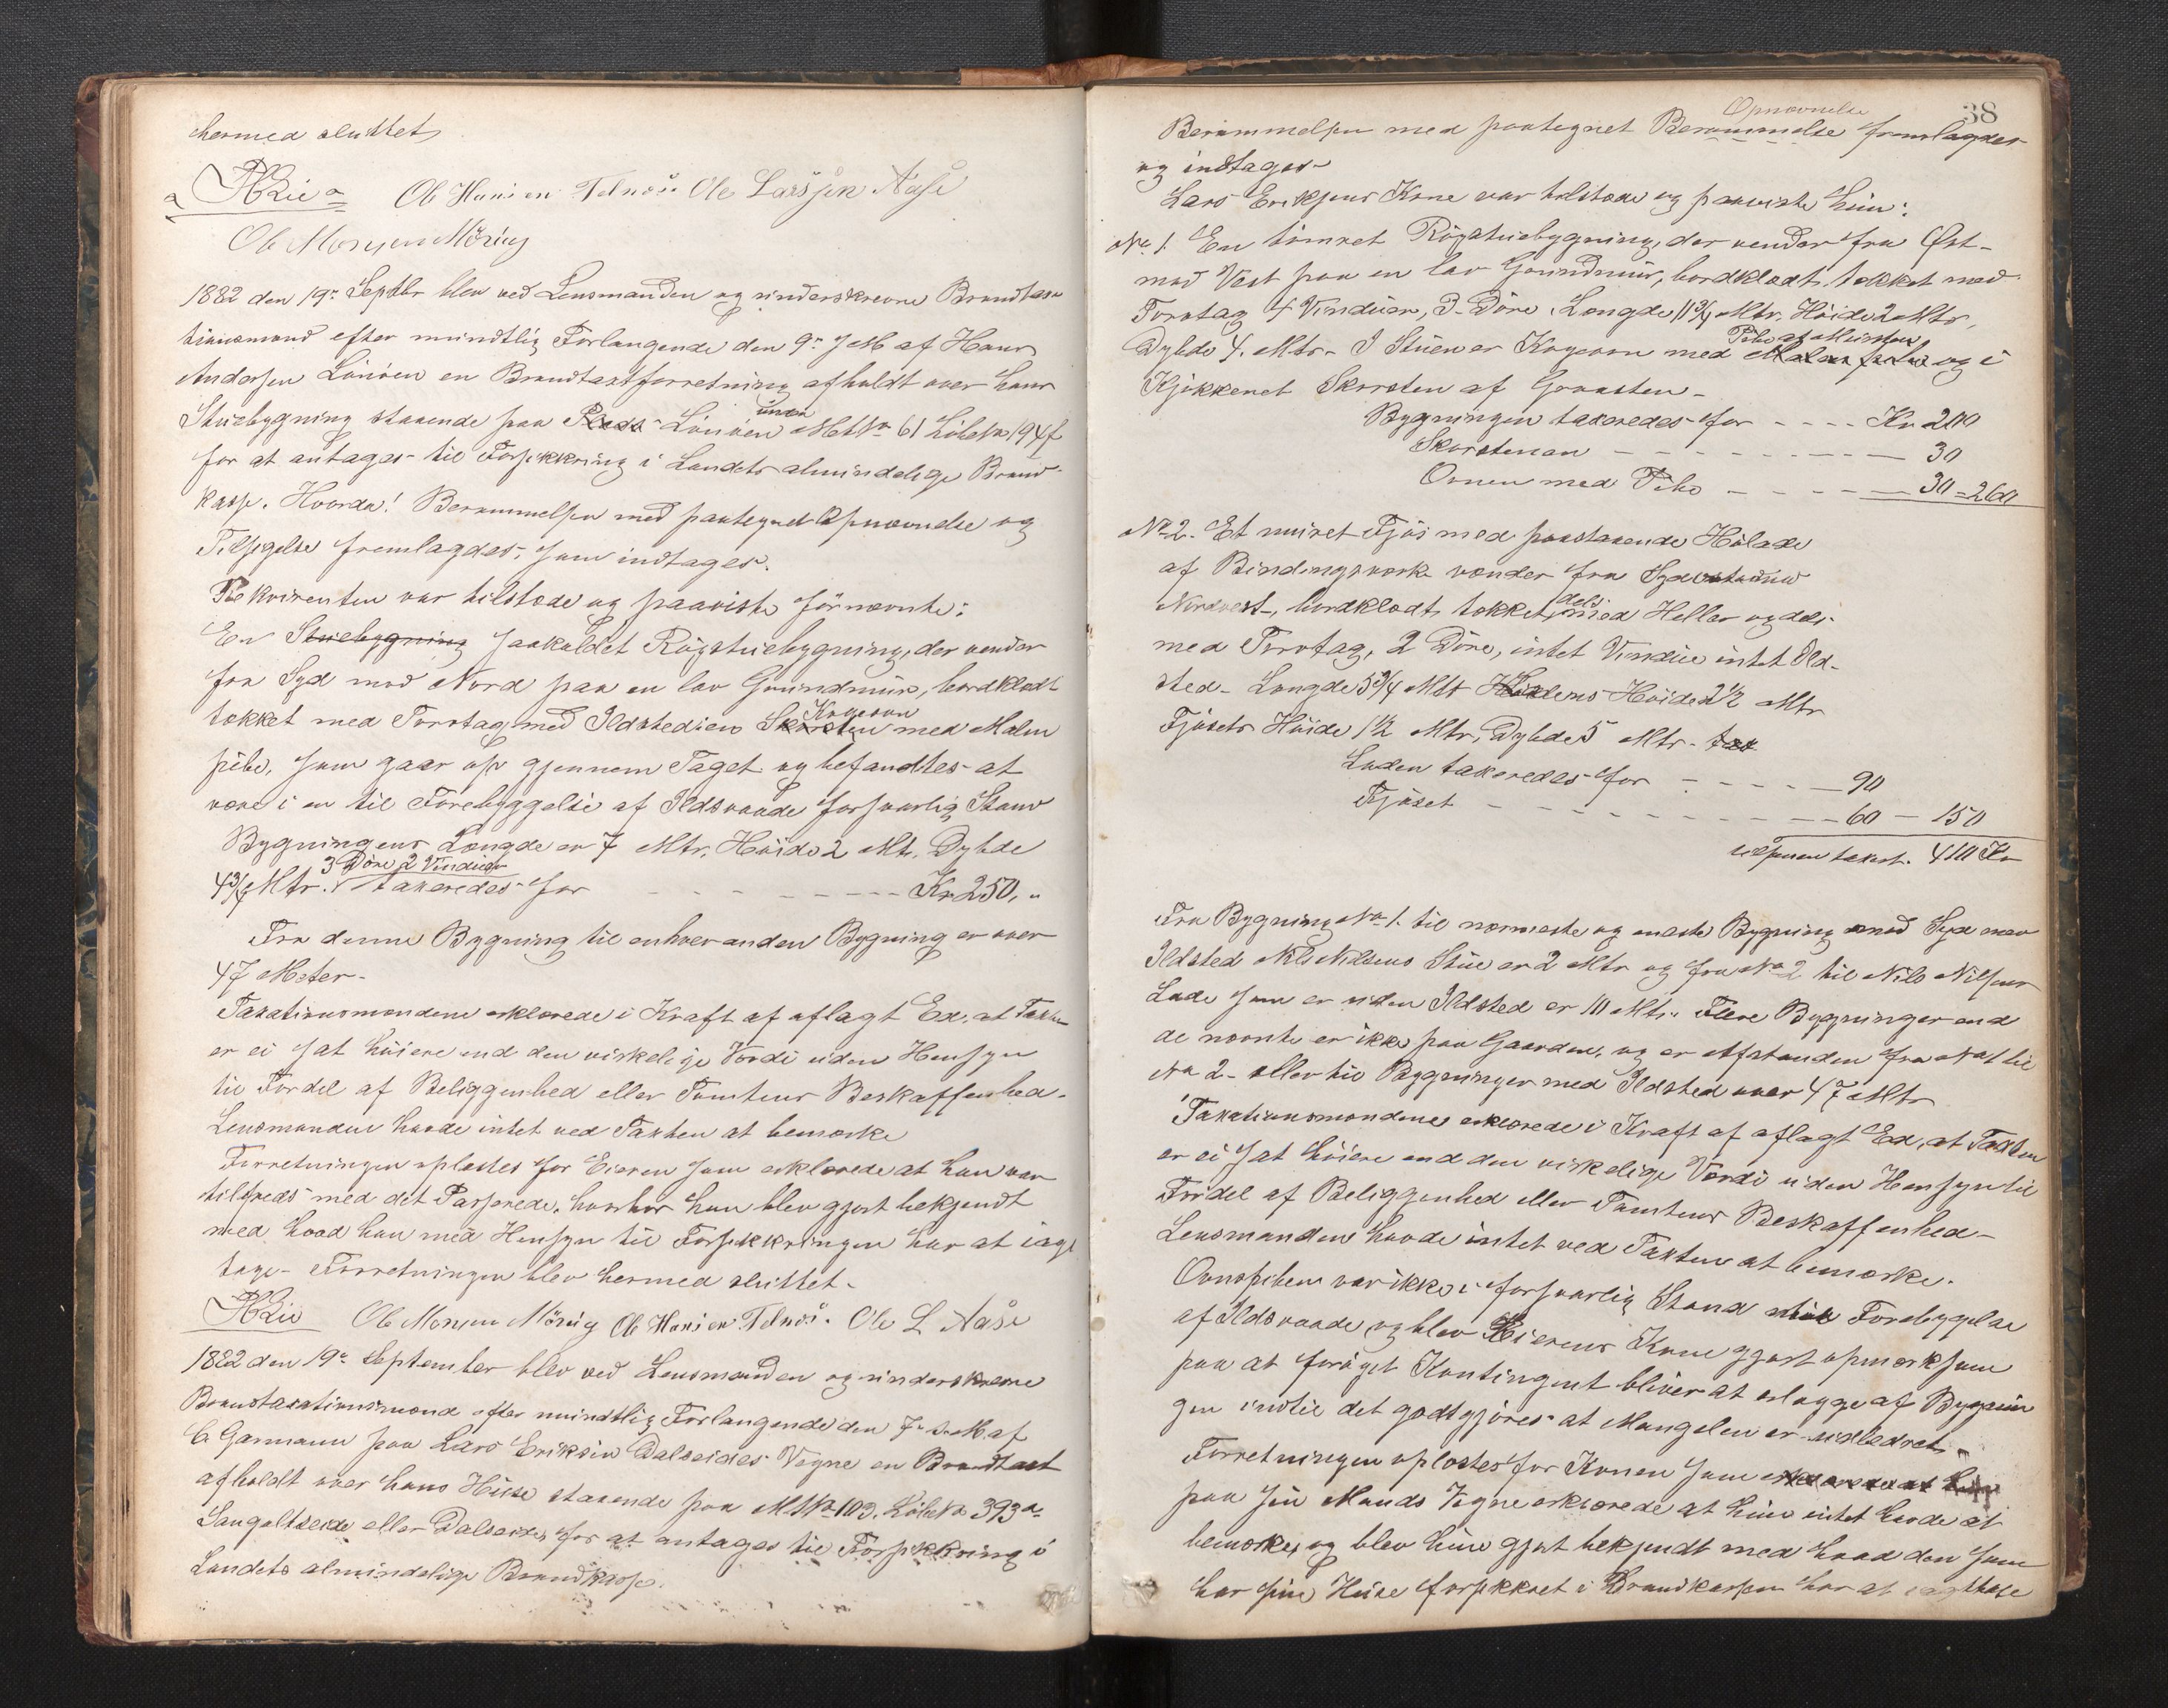 hermed sluttet,
Ole Hansen Telnæs Ole Larssen Aase
Ole Monsen Möring
1882 den 19de Septbr blev ved Lensmanden og underskrevne Brandtaxa
tionsmænd efter mundtlig Forlangende den 9de ds M af Hans
Andersen Lönöen en Brandtaxtforretning afholdt over hans
Stuebygning staaende paa Plads Lönöen under MtNo 61 LöbeNo 194f
for at antages til Forsikkring i Landets almindelige Brand-
kasse. Hvorda! Berammelsen med paategnet Opnævnelse og
Tilsigelse fremlagdes, som indtages.
Rekvirenten var tilstede og paaviste förnævnte:
En Stuebygning saakaldet Rögstuebygning, der vender
fra Syd mod Nord paa en lav Grundmuur, bordklædt
tækket med Torvtag med Ildstedien Skorsten Kogeovn med Malm
pibe, som gaar op gjennem Taget og befandtes at
være i en til Forebyggelse af Ildsvaade forsvarlig Stand
Bygningens Længde er 7 Mtr. Höide 2 Mtr. Dybde
4 3/4 Mtr. 3 Döre, 2 Vinduer taxeredes for - - - - - Kr 250, "
Fra denne Bygning til enhver anden Bygning er over
47 Meter -
Taxationsmændene erklærede i Kraft af aflagt Ed, at Taxten
er ei sat höiere end den virkelige Værdi uden Hensyn
til Fordel af Beliggenhed eller Tomtens Beskaffenhed.
Lensmanden havde intet ved Taxten at bemærke
Forretningen oplæstes for Eieren som erklærede at han var
tilfreds med det Passerede, hvorhos han blev gjort bekjendt
med hvad han med Hensyn til Forsikkringen har at iagt
tage - Forretningen blev hermed sluttet -
Ole Monsen Möring Ole Hansen Telnæs. Ole L. Aase
1882 den 19de September blev ved Lensmanden og underskrevne
Brandtaxationsmænd efter mundtlig Forlangende den 7de ds M af
C. Garmann paa Lars Eriksen Dalseides Vegne en Brandtaxt
afholdt over hans Huse staaende paa MtNo 103. LöbeNo 393a
Saugoltseide eller Dalseide, for at antages til Forsikkring i
Landets almindelige Brandkasse.
38
Opnævnelse
Berammelsen med paategnet Berammelse fremlagdes
og indtages -
Lars Eriksens Kone var tilstede og paaviste hun:
No 1. En tömret Rögstuebygning, der vender fra Öst-
mod Vest paa en lav Grundmuur, bordklædt, tækket med
Torvtag 4 Vinduer, 3 Döre, Længde 11 3/4 Mtr. Höide 2 Mtr,
Dybde 4. Mtr. - I Stuen er Kogeovn med Pibe af Mursten og i
Kjökkenet Skorsten af Graasten -
Bygningen taxeredes for - - - - Kr 200
Skorstenen - - - - - - - 30
Ovnen med Pibe - - - - - 30 = 260
No 2. Et muret Fjös med paastaaende Hölade
af Bindingsværk vender fra Sydost mod
Nordvest, bordklædt, tækket dels med Heller og dels
med Torvtag, 2 Döre, intet Vindue intet Ild-
sted - Længde 5 3/4 Mtr Ladens Höide 2 1/2 Mtr
Fjösets Höide 1 1/2 Mtr, Dybde 5 Mtr. - tax
Laden taxeredes for - - - - 90
Fjöset - - - - - - - - 60 - 150
tilsammen taxt. 410 Kr
Fra Bygning No 1. til nærmeste og eneste Bygning mod Syd med
Ildsted Nils Nilsens Stue er 2 Mtr og fra No 2 til Nils Nilsens
Lade som er uden Ildsted er 10 Mtr. Flere Bygninger end
de nævnte er ikke paa Gaarden, og er Afstanden fra No 1 til
No 2 - eller til Bygninger med Ildsted over 47 Mtr
Taxationsmændene erklærede i Kraft af aflagt Ed, at Taxten
er ei sat höiere end den virkelige Værdi uden Hensyn til
Fordel af Beliggenhed eller Tomtens Beskaffenhed -
Lensmanden havde intet ved Taxten at bemærke.
Ovnspiben var ikke i forsvarlig Stand til Forebyggelse
af Ildsvaade og blev Eierens Kone gjort opmærksom
paa at foröget Kontingent bliver at erlægge af Bygnin
gen indtil det godtgjöres at Mangelen er udbedret -
Forretningen oplæstes for Konen som
paa sin Mands Vegne erklærede at hun intet havde at
bemærke, og blev hun gjort bekjendt med hvad den som
har sine Huse forsikkret i Brandkassen har at iagttage